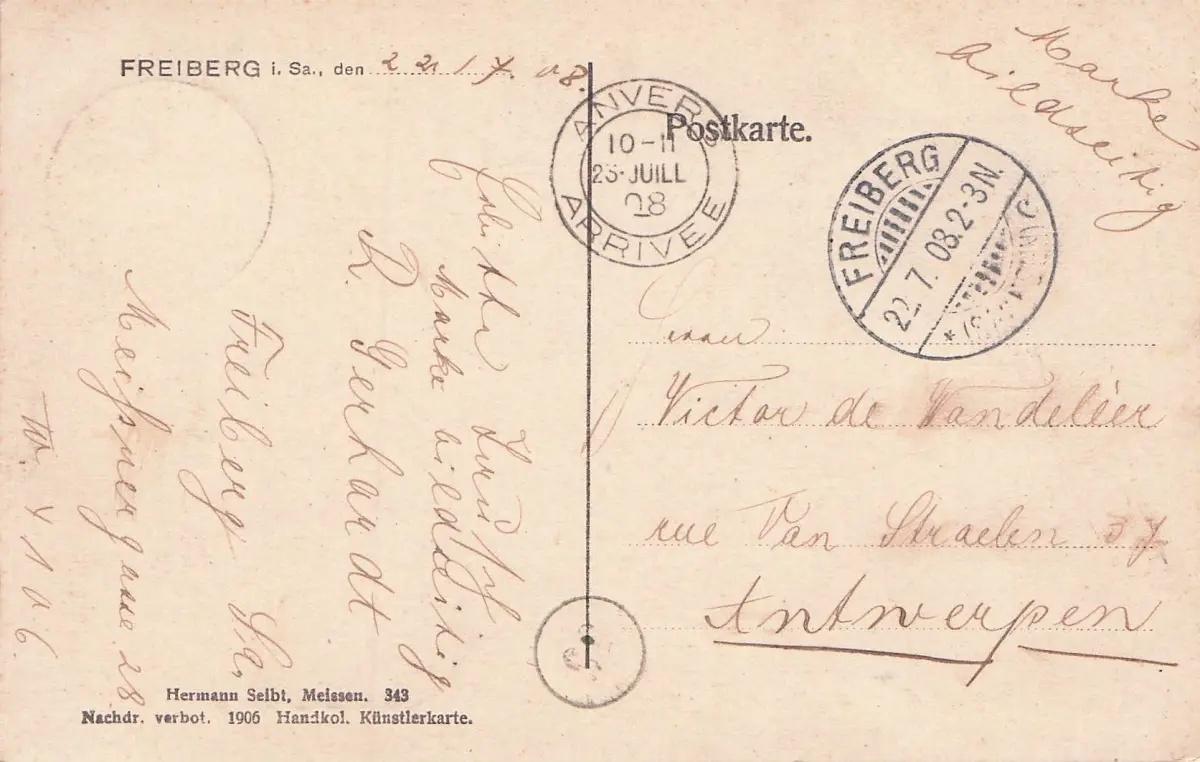 FREIBERG i. Sa., den 22/7. 08.
Postkarte.
Marke
bildseitig
ANVERS
10-11
23·JUILL
08
ARRIVEE
FREIBERG
22.7.08.2-3N.
Marke bildseitig
R. Gerhardt
Freiberg Sa,
Meißnergasse 28
Herrn
Victor de Vandeléer
rue Van Straelen 37
Antwerpen
Hermann Seibt, Meissen. 343
Nachdr. verbot. 1906 Handkol. Künstlerkarte.